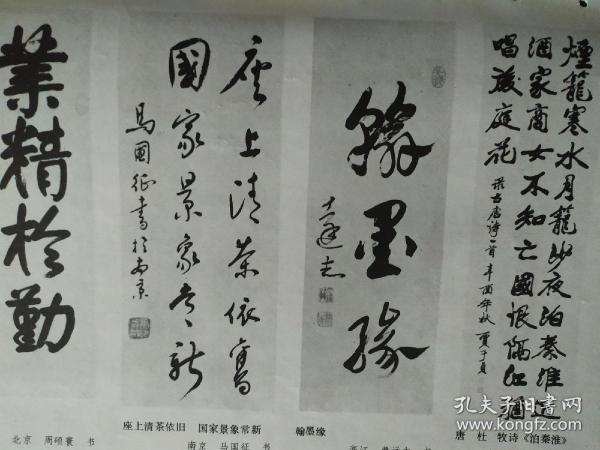 業精於勤
北京 周硕寰 书
座上清茶依舊
國家景象常新
馬國征書於南京
座上清茶依旧 国家景象常新
南京 马国征 书
翰墨緣
翰墨缘
浙江
煙籠寒水月籠沙夜泊秦淮近
酒家商女不知亡國恨隔江猶
唱後庭花
唐诗一首 辛酉年秋
唐 杜 牧诗《泊秦淮》
孔夫子旧书网